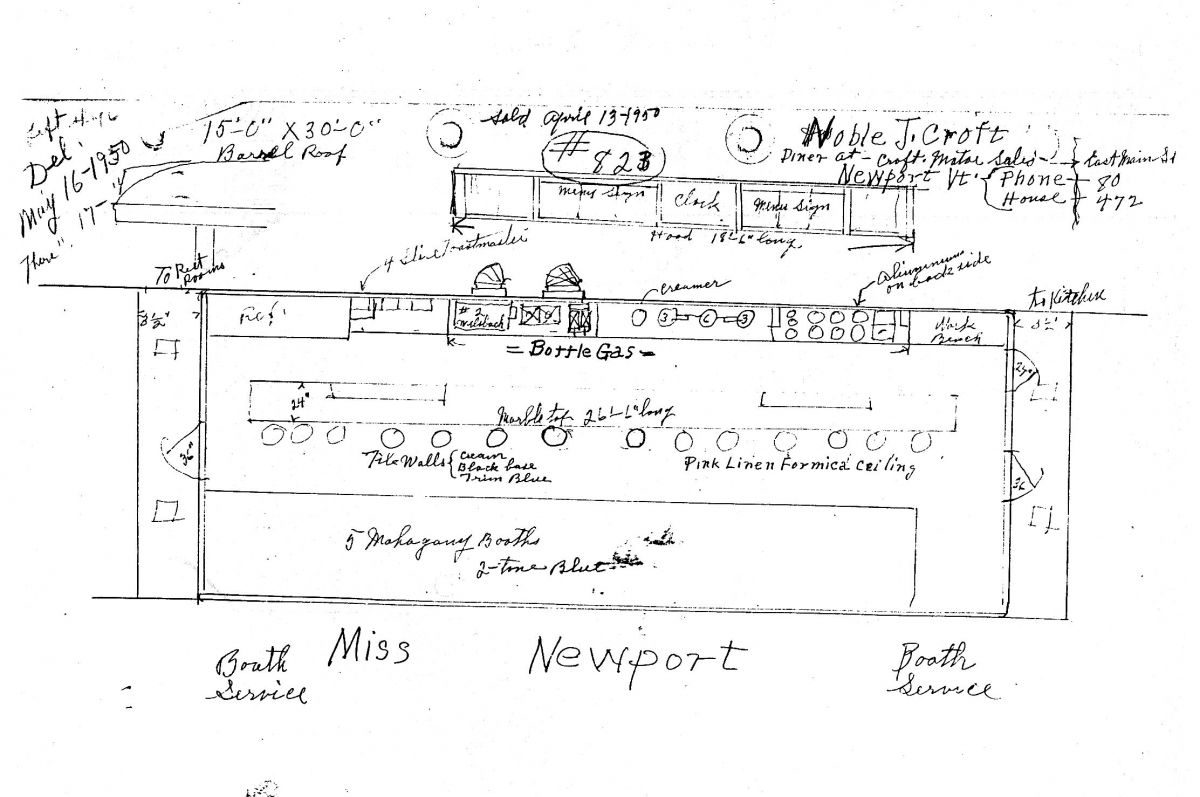 Left
Del.
May 16-1950
There 17-
15'-0" X 30'-0"
Barrel Roof
Sold April 13-1950
# 823
Noble J. Croft
Diner at - Croft Motor Sales - East Main St
Newport Vt. Phone - 80
House - 472
Menu Sign
Clock
Menu Sign
Hood 18'-6" long
4 Slice Toastmaster
To Rest
Rooms
creamer
Aluminum
on backside
to Kitchen
3½'
#2
3
6
3
Work
Bench
3½'
= Bottle Gas -
24"
Marble top 26'-1" long
36"
Tile Walls
Cream
Black base
Trim Blue
Pink Linen Formica Ceiling
36
5 Mahogany Booths
2-tone Blue
Miss Newport
Booth
Service
Booth
Service